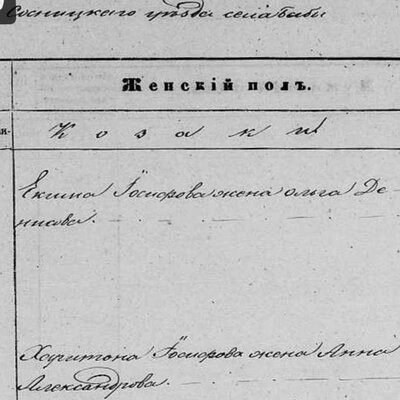 Сосницкаго уѣзда села Бабы
Женскій полъ.
Козаки
Екима Іосифова жена Ольга Де-
нисова.
Харитона Іосифова жена Анна
Александрова.